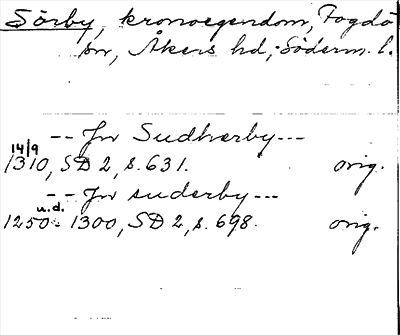 Sörby, kronoegendom, Fogdö
sn, Åkers hd, Söderm. l.
-- Jn Sudhærby ---
14/9
1310, SD 2, s. 631. orig.
-- Jn suderby ---
u.d.
1250-1300, SD 2, s. 698. orig.